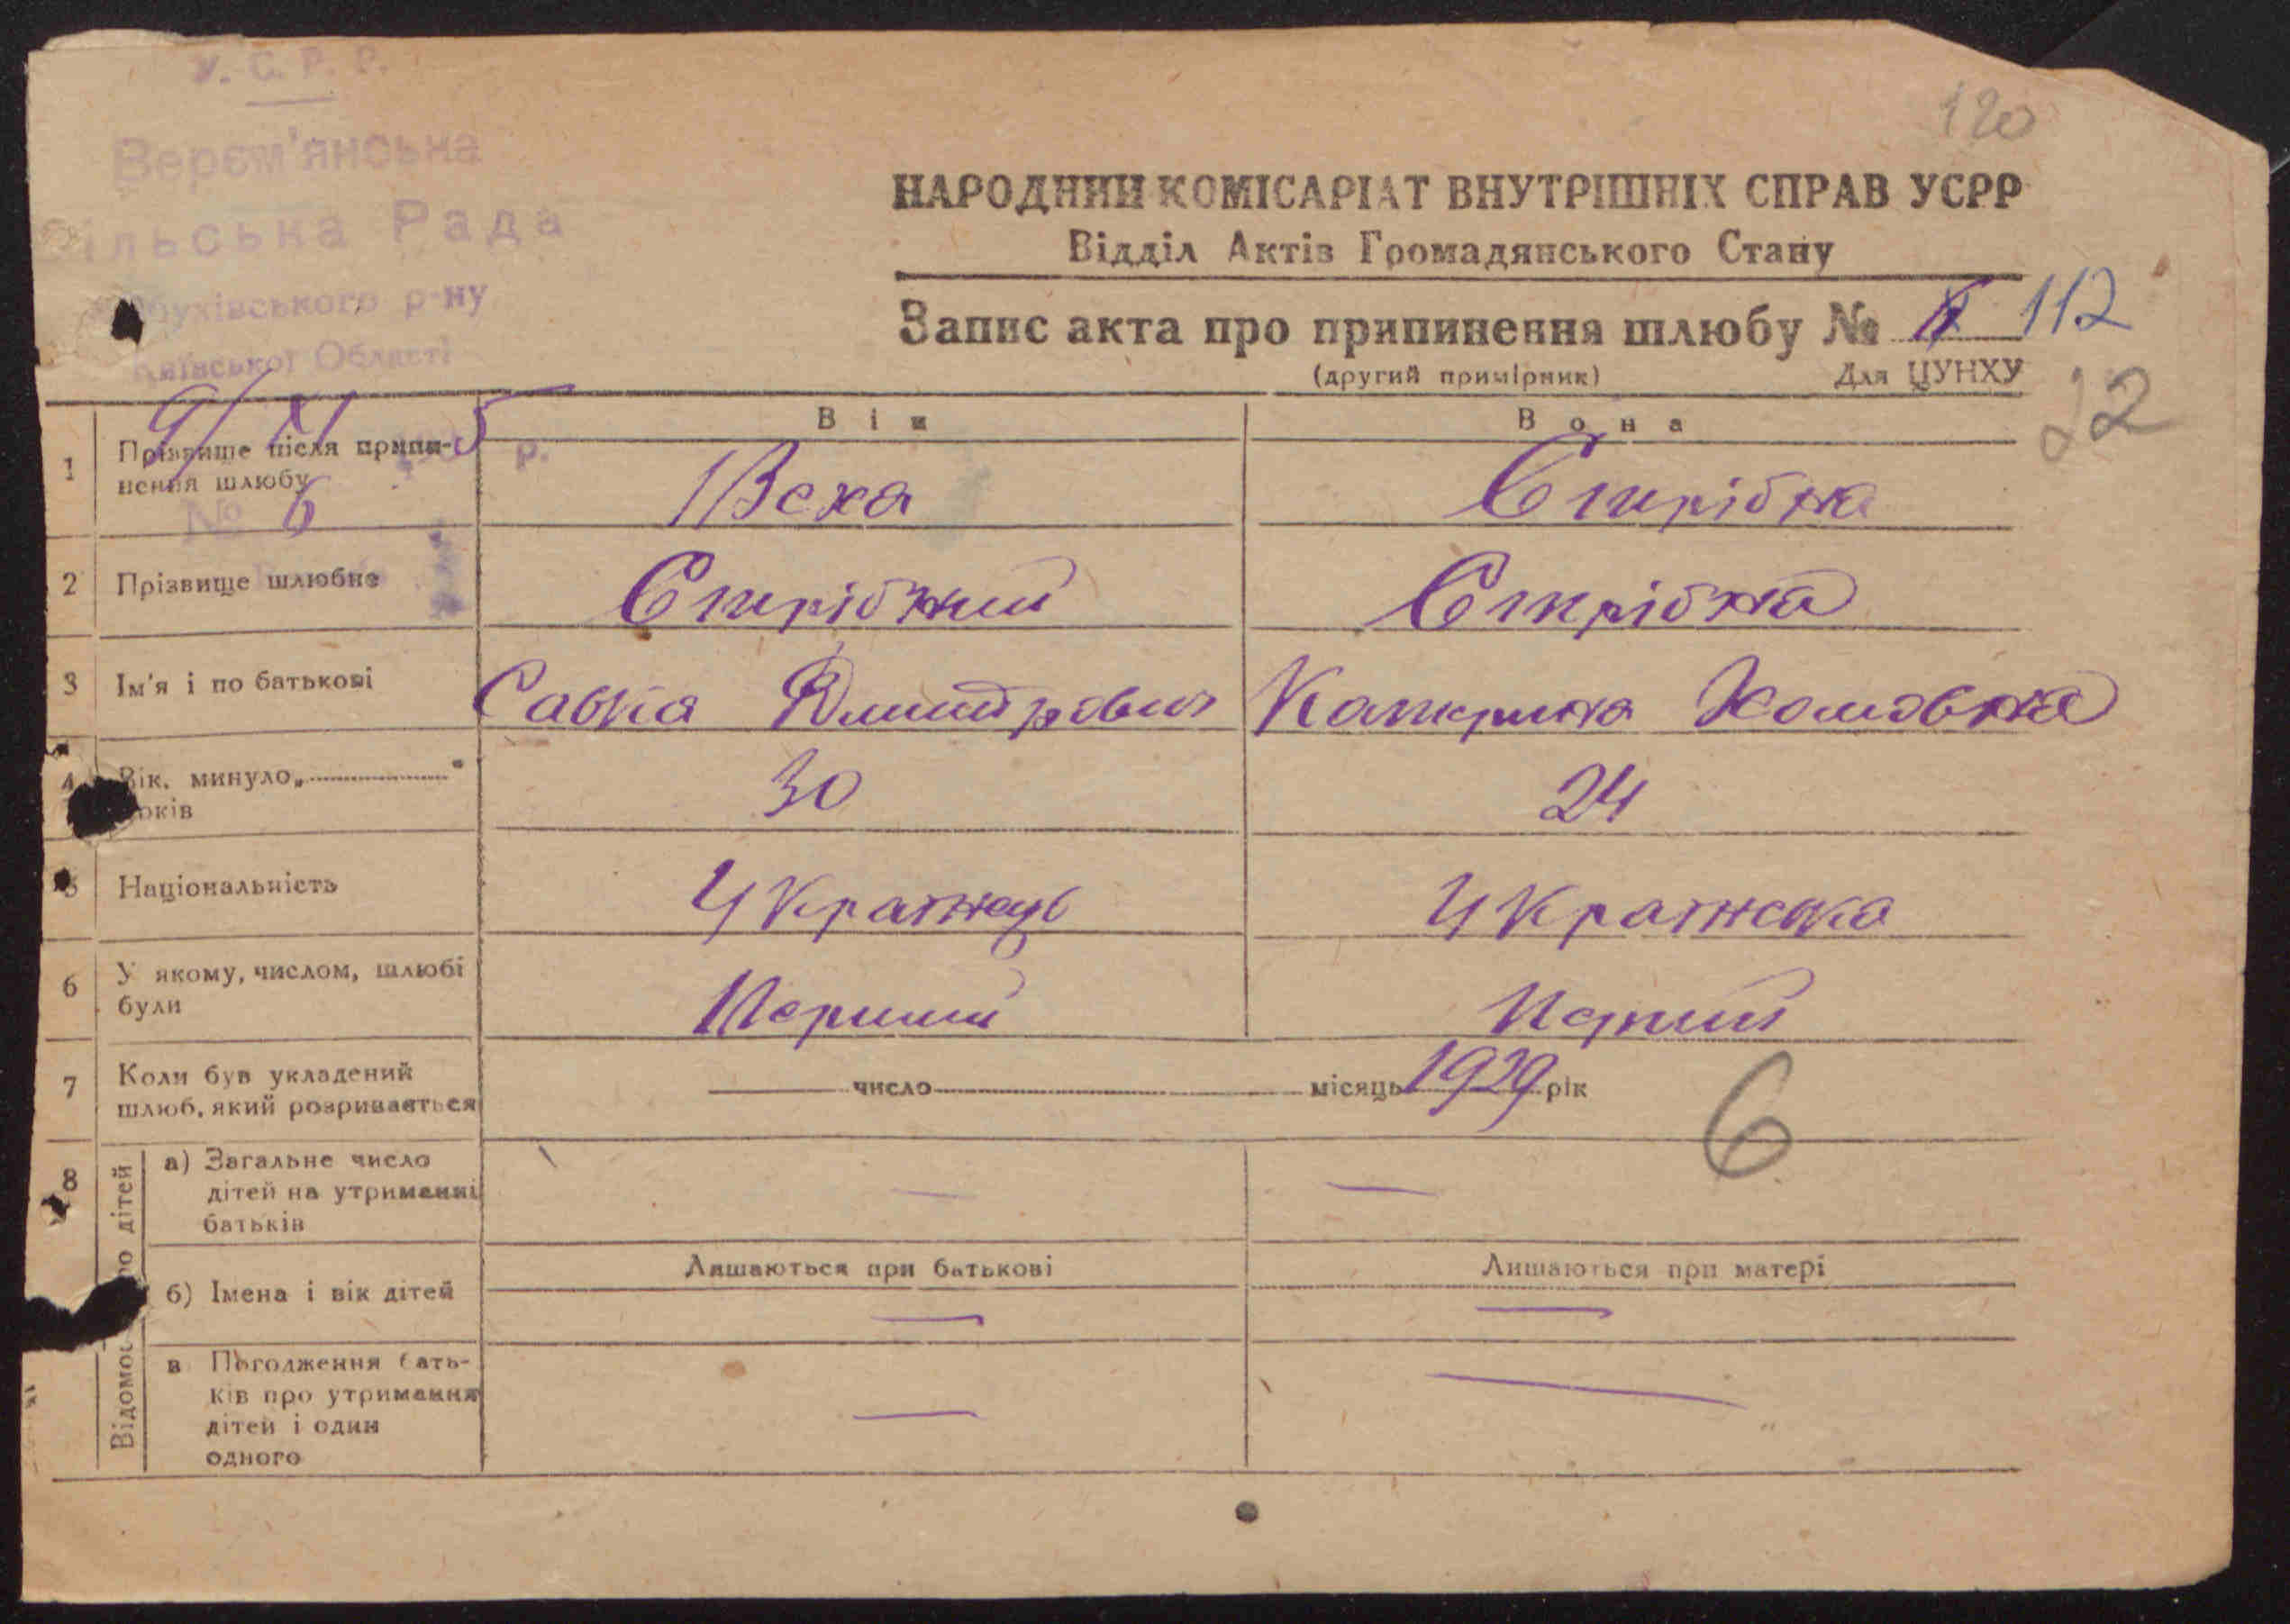 120
У. С. Р. Р.
Верем'янська
Сільська Рада
Обухівського р-ну
Київської Області
9/XI 5 р.
№ 6
НАРОДНИЙ КОМІСАРІАТ ВНУТРІШНІХ СПРАВ УСРР
Відділ Актів Громадянського Стану
Запис акта про припинення шлюбу № 112
(другий примірник) Для ЦУНХУ
22
Він Вона
1 Прізвище після припи-
нення шлюбу Стрібна
2 Прізвище шлюбне Стрібний Стрібна
3 Ім'я і по батькові Савка Дмитрович Катерина Хомовна
4 Вік. минуло „ “
років 30 24
5 Національність Украінець Украінська
6 У якому, числом, шлюбі
були Перший Перший
7 Коли був укладений
шлюб, який розривається число місяць 1929 рік
6
8 Відомості про дітей
а) Загальне число
дітей на утриманні
батьків
Лишаються при батькові Лишаються при матері
б) Імена і вік дітей
в Погодження бать-
ків про утримання
дітей і один
одного